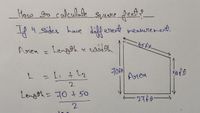 How to calculate square feet?
If 4 sides have different measurement.
Area = Length x width
L = L₁ + L₂
2
Length = 70 + 50
2
70ft
Area
27ft